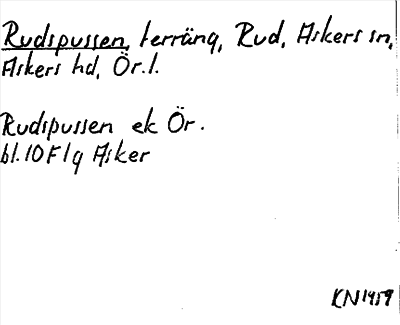 Rudspussen, terräng, Rud, Askers sn,
Askers hd, Ör.l.
Rudspussen ek Ör.
bl. 10 F 1g Asker
KN 1959